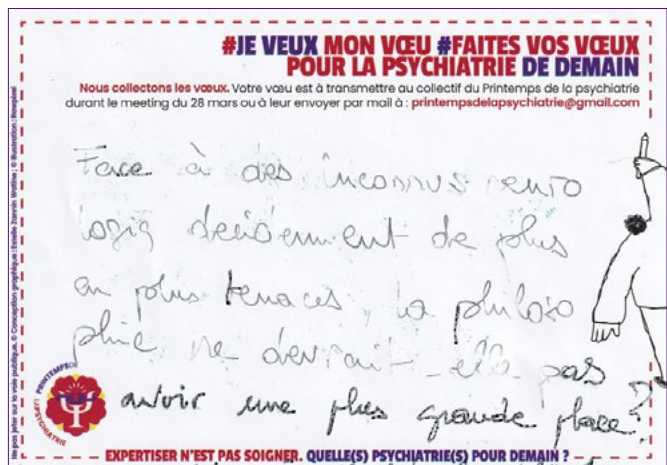 #JE VEUX MON VŒU #FAITES VOS VŒUX
POUR LA PSYCHIATRIE DE DEMAIN
Nous collectons les vœux. Votre vœu est à transmettre au collectif du Printemps de la psychiatrie
durant le meeting du 28 mars ou à leur envoyer par mail à : printempsdelapsychiatrie@gmail.com
Face à des inconnus neuro
logiq décidemment de plus
en plus tenaces, la philoso
phie ne devrait-elle pas
avoir une plus grande place?
PRINTEMPS DE
LA PSYCHIATRIE
EXPERTISER N'EST PAS SOIGNER. QUELLE(S) PSYCHIATRIE(S) POUR DEMAIN ?
Ne pas jeter sur la voie publique. © Conception graphique : Estelle